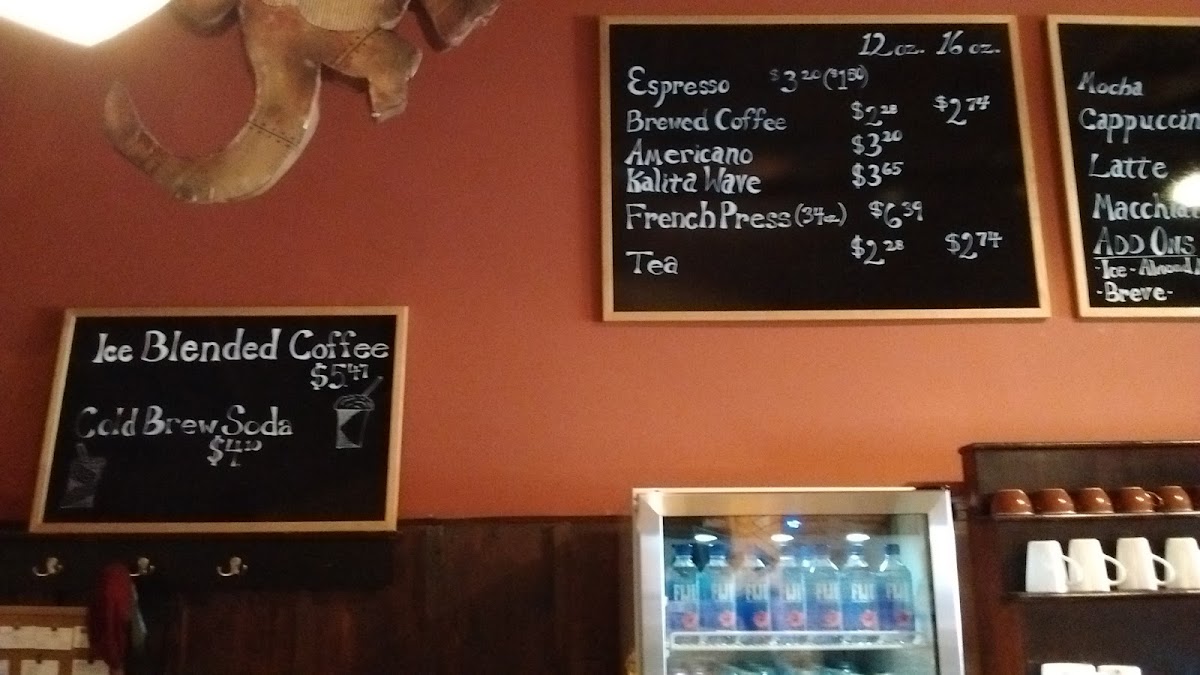 12 oz. 16 oz.
Espresso $3.20 ($1.50)
Brewed Coffee $2.28 $2.74
Americano $3.20
Kalita Wave $3.65
French Press (34oz) $6.39
Tea $2.28 $2.74
Mocha
Cappuccin
Latte
Macchia
ADD ONS
-Ice - Almond
-Breve-
Ice Blended Coffee
$5.47
Cold Brew Soda
$4.10
FIJI FIJI FIJI FIJI FIJI FIJI FIJI